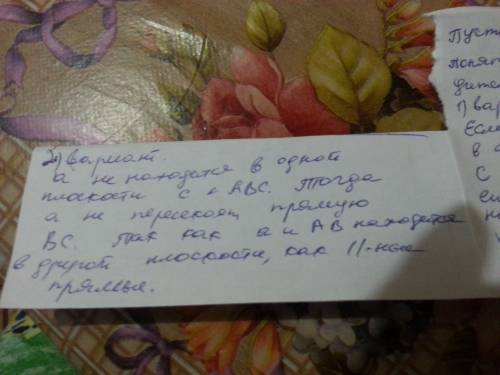 2) Вариант.
а не находится в одной
плоскости с ▲ АВС. Тогда
а не пересекает прямую
ВС. Так как а и АВ находятся
в другой плоскости, как //-ные
прямые.
Пусть
1) вар
Если
в
С